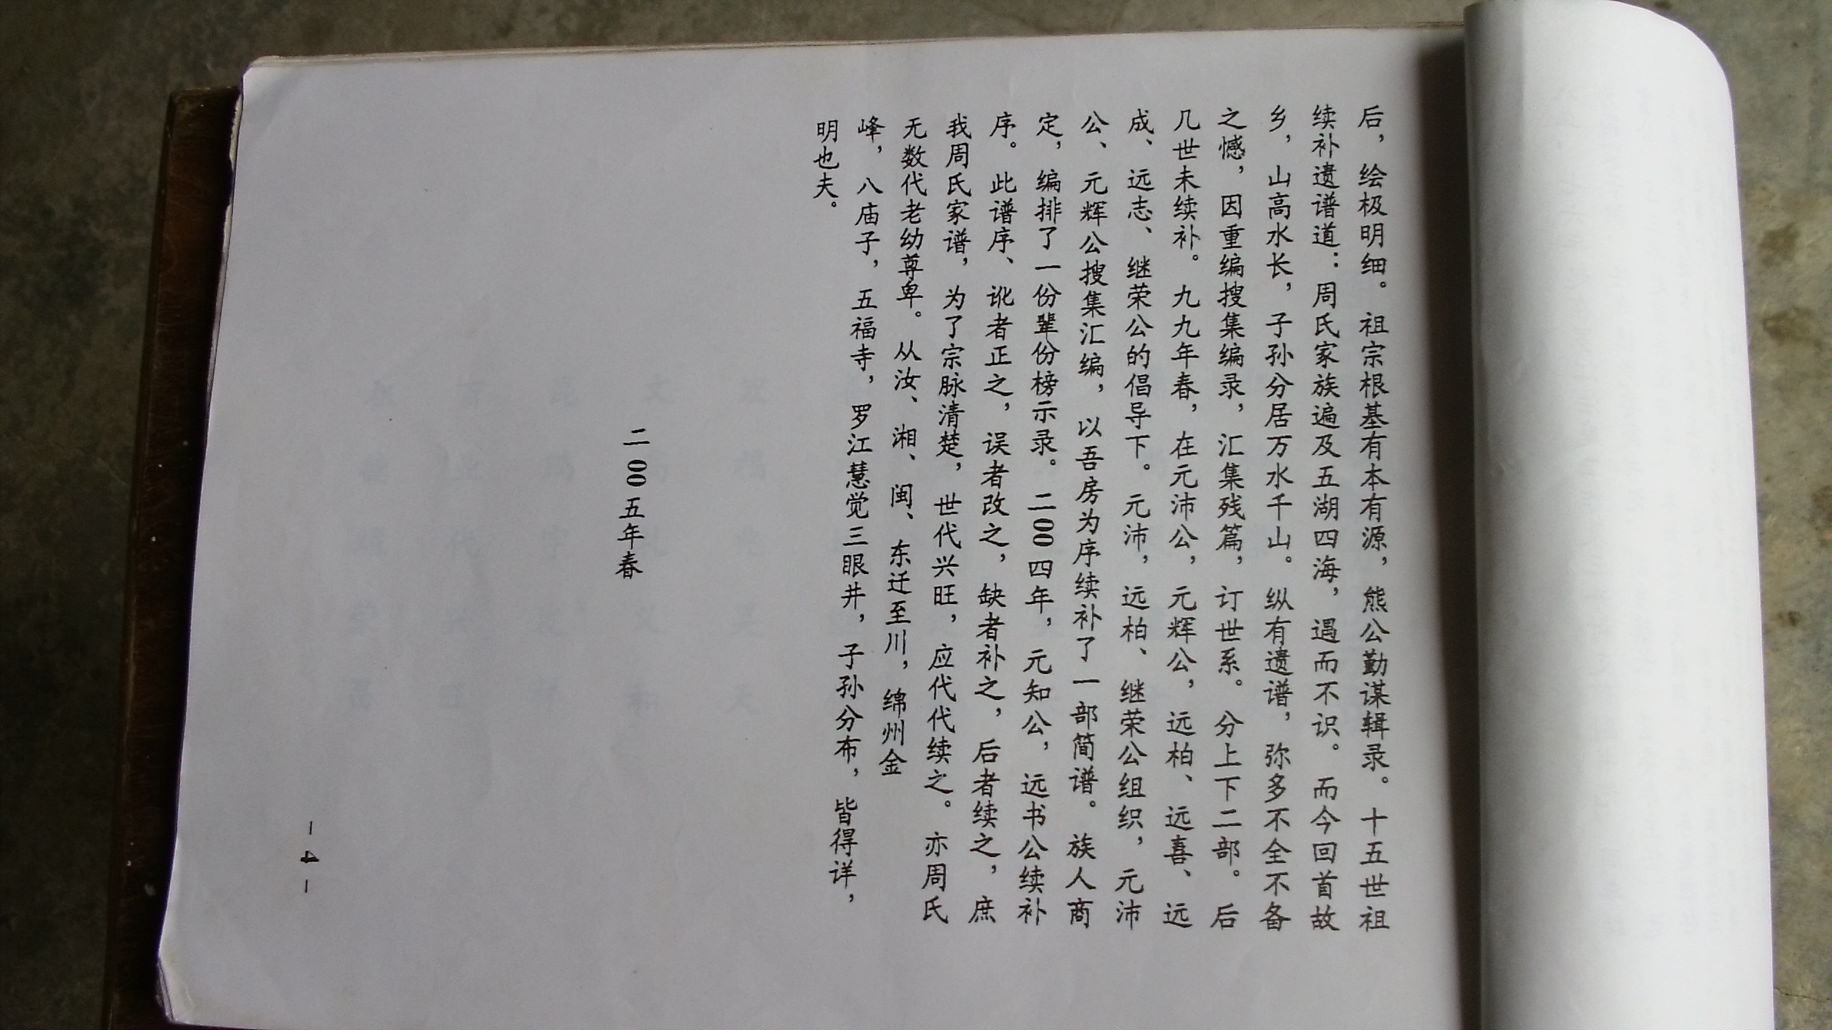 后，绘极明细。祖宗根基有本有源，熊公勤谋辑录。十五世祖
续补遗谱道：周氏家族遍及五湖四海，遇而不识。而今回首故
乡，山高水长，子孙分居万水千山。纵有遗谱，弥多不全不备
之憾，因重编搜集编录，汇集残篇，订世系。分上下二部。后
几世未续补。九九年春，在元沛公，元辉公，远柏、远喜、远
成、远志、继荣公的倡导下。元沛，远柏、继荣公组织，元沛
公、元辉公搜集汇编，以吾房为序续补了一部简谱。族人商
定，编排了一份辈份榜示录。二00四年，元知公，远书公续补
序。此谱序、讹者正之，误者改之，缺者补之，后者续之，庶
我周氏家谱，为了宗脉清楚，世代兴旺，应代代续之。亦周氏
无数代老幼尊卑。从汝、湘、闽、东迁至川，绵州金
峰，八庙子，五福寺，罗江慧觉三眼井，子孙分布，皆得详，
明也夫。
二00五年春
－4－